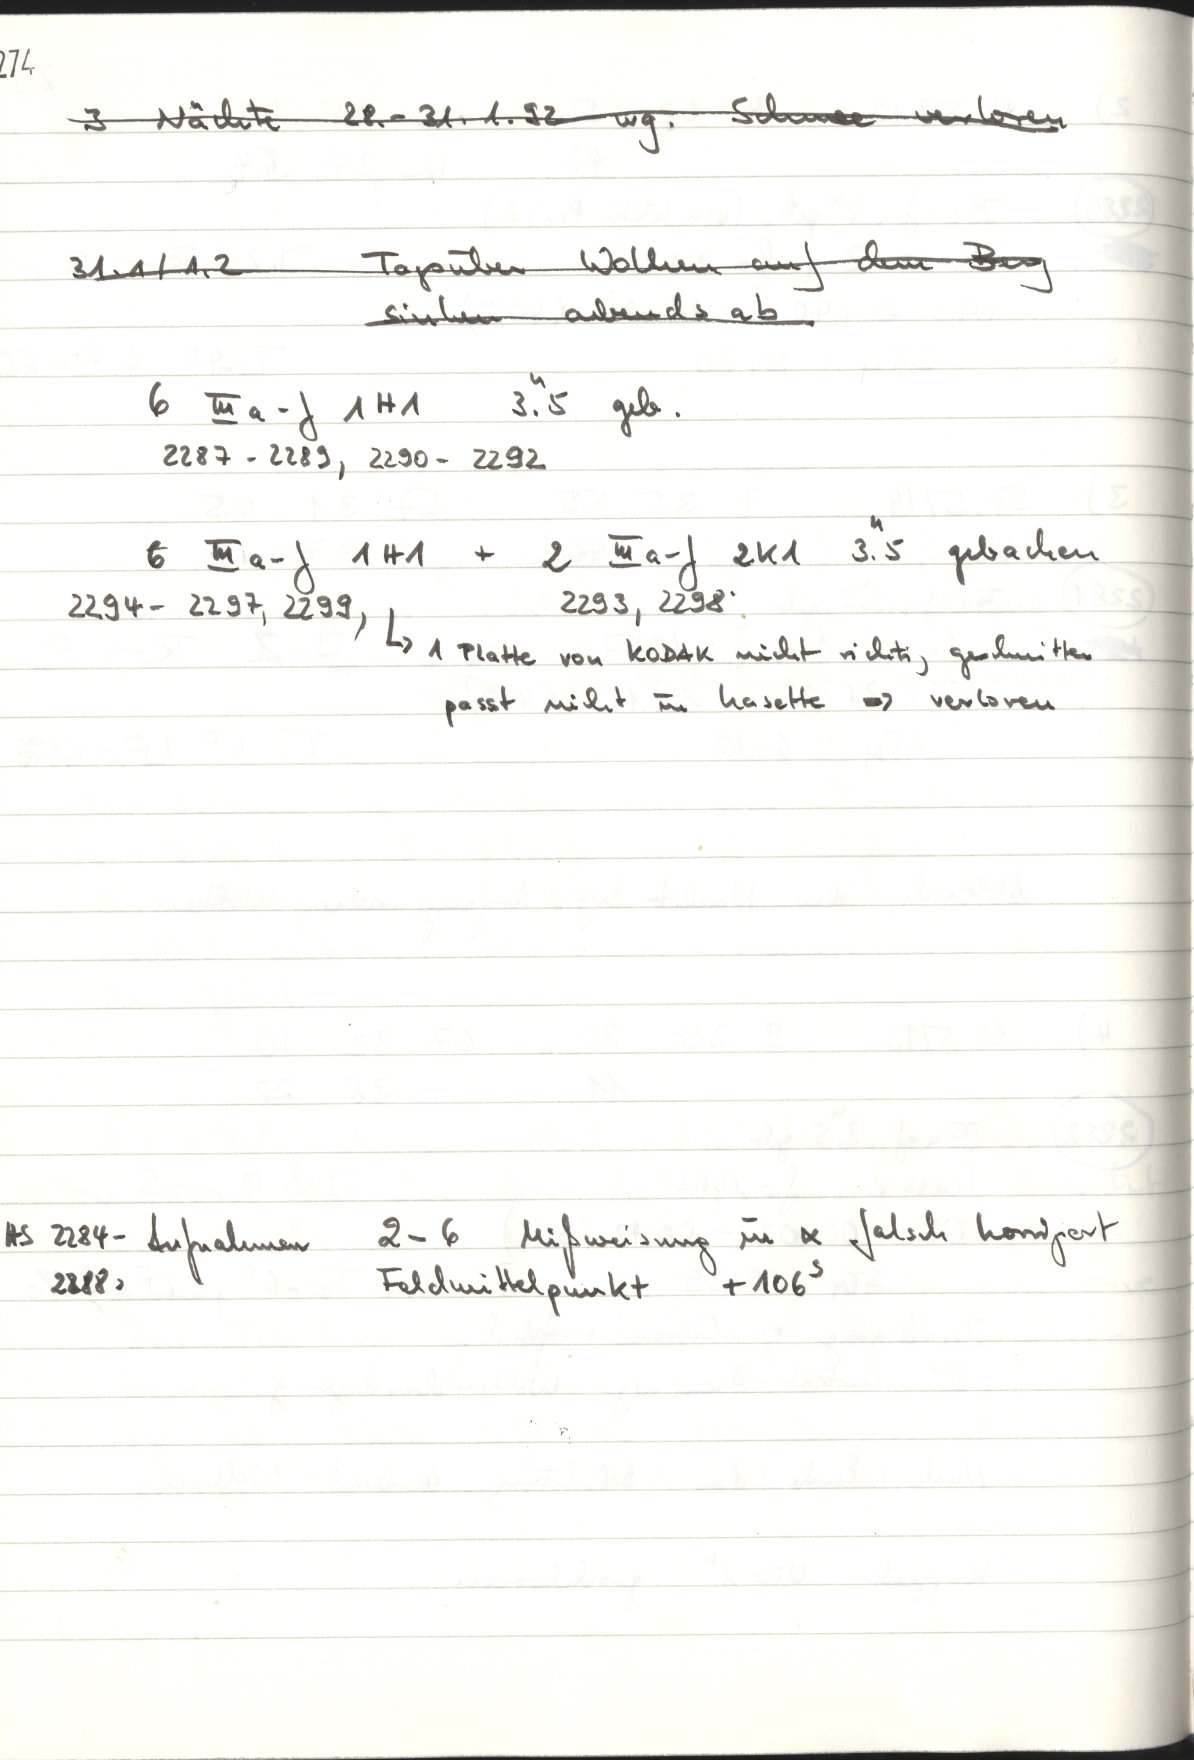 274
3 Nächte 28.-31.1.92 wg. Schnee verloren
31.1/1.2 Tagsüber Wolken auf dem Berg
sinken abends ab
6 IIIa-J 1H1 3.ʰ5 geb.
2287-2289, 2290-2292
6 IIIa-J 1H1 + 2 IIIa-J 2K1 3.ʰ5 gebacken
2294-2297, 2299, 2293, 2298
↳ 1 Platte von KODAK nicht richtig geschnitten
passt nicht in Kasette => verloren
HS 2284- Aufnahmen 2-6 Mißweisung in α falsch korrigiert
2288: Feldmittelpunkt +106ˢ